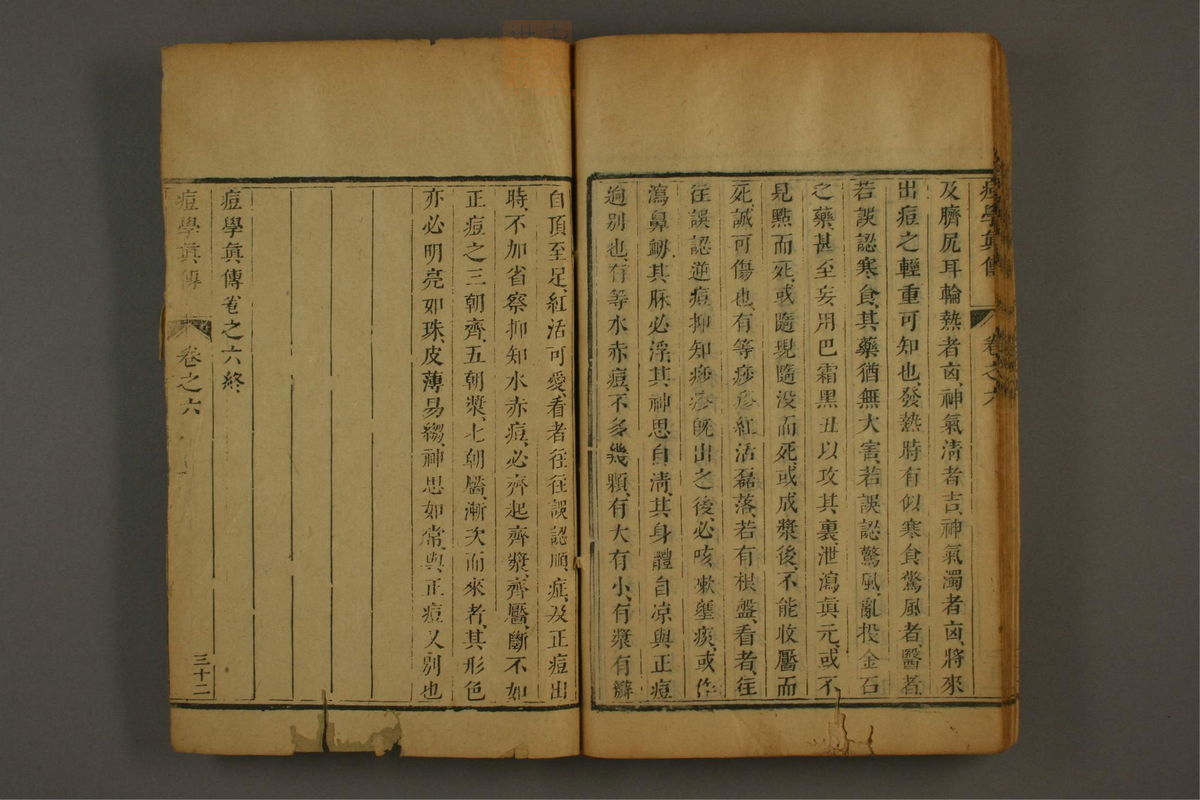 痘學眞傳 卷之六
及臍尻耳輪熱者卤、神氣清者吉、神氣濁者卤、將來
出痘之輕重可知也、發熱時有似寒食驚風者、醫者
若誤認寒食、其藥猶無大害、若誤認驚風、亂投金石
之藥、甚至妄用巴霜黑丑以攻其裏、泄瀉眞元、或不
見點而死、或隨現隨没而死、或成漿後、不能收靨而
死、誠可傷也、有等痧疹、紅活磊落、若有根盤、看者、往
往誤認逆痘、抑知痧疹旣出之後、必咳嗽壅痰、或作
瀉鼻衂、其脉必浮、其神思自清、其身體自凉、與正痘
逈别也、有等水赤痘、不多幾顆、有大有小、有漿有癬
自頂至足、紅活可愛、看者往往誤認順症、及正痘出
時、不加省察、抑知水赤痘、必齊起齊漿、齊靨、斷不如
正痘之三朝齊、五朝漿、七朝靨、漸次而來者、其形色
亦必明亮如珠、皮薄易縐、神思如常、與正痘又别也
痘學眞傳卷之六終
痘學眞傳 卷之六 三十二